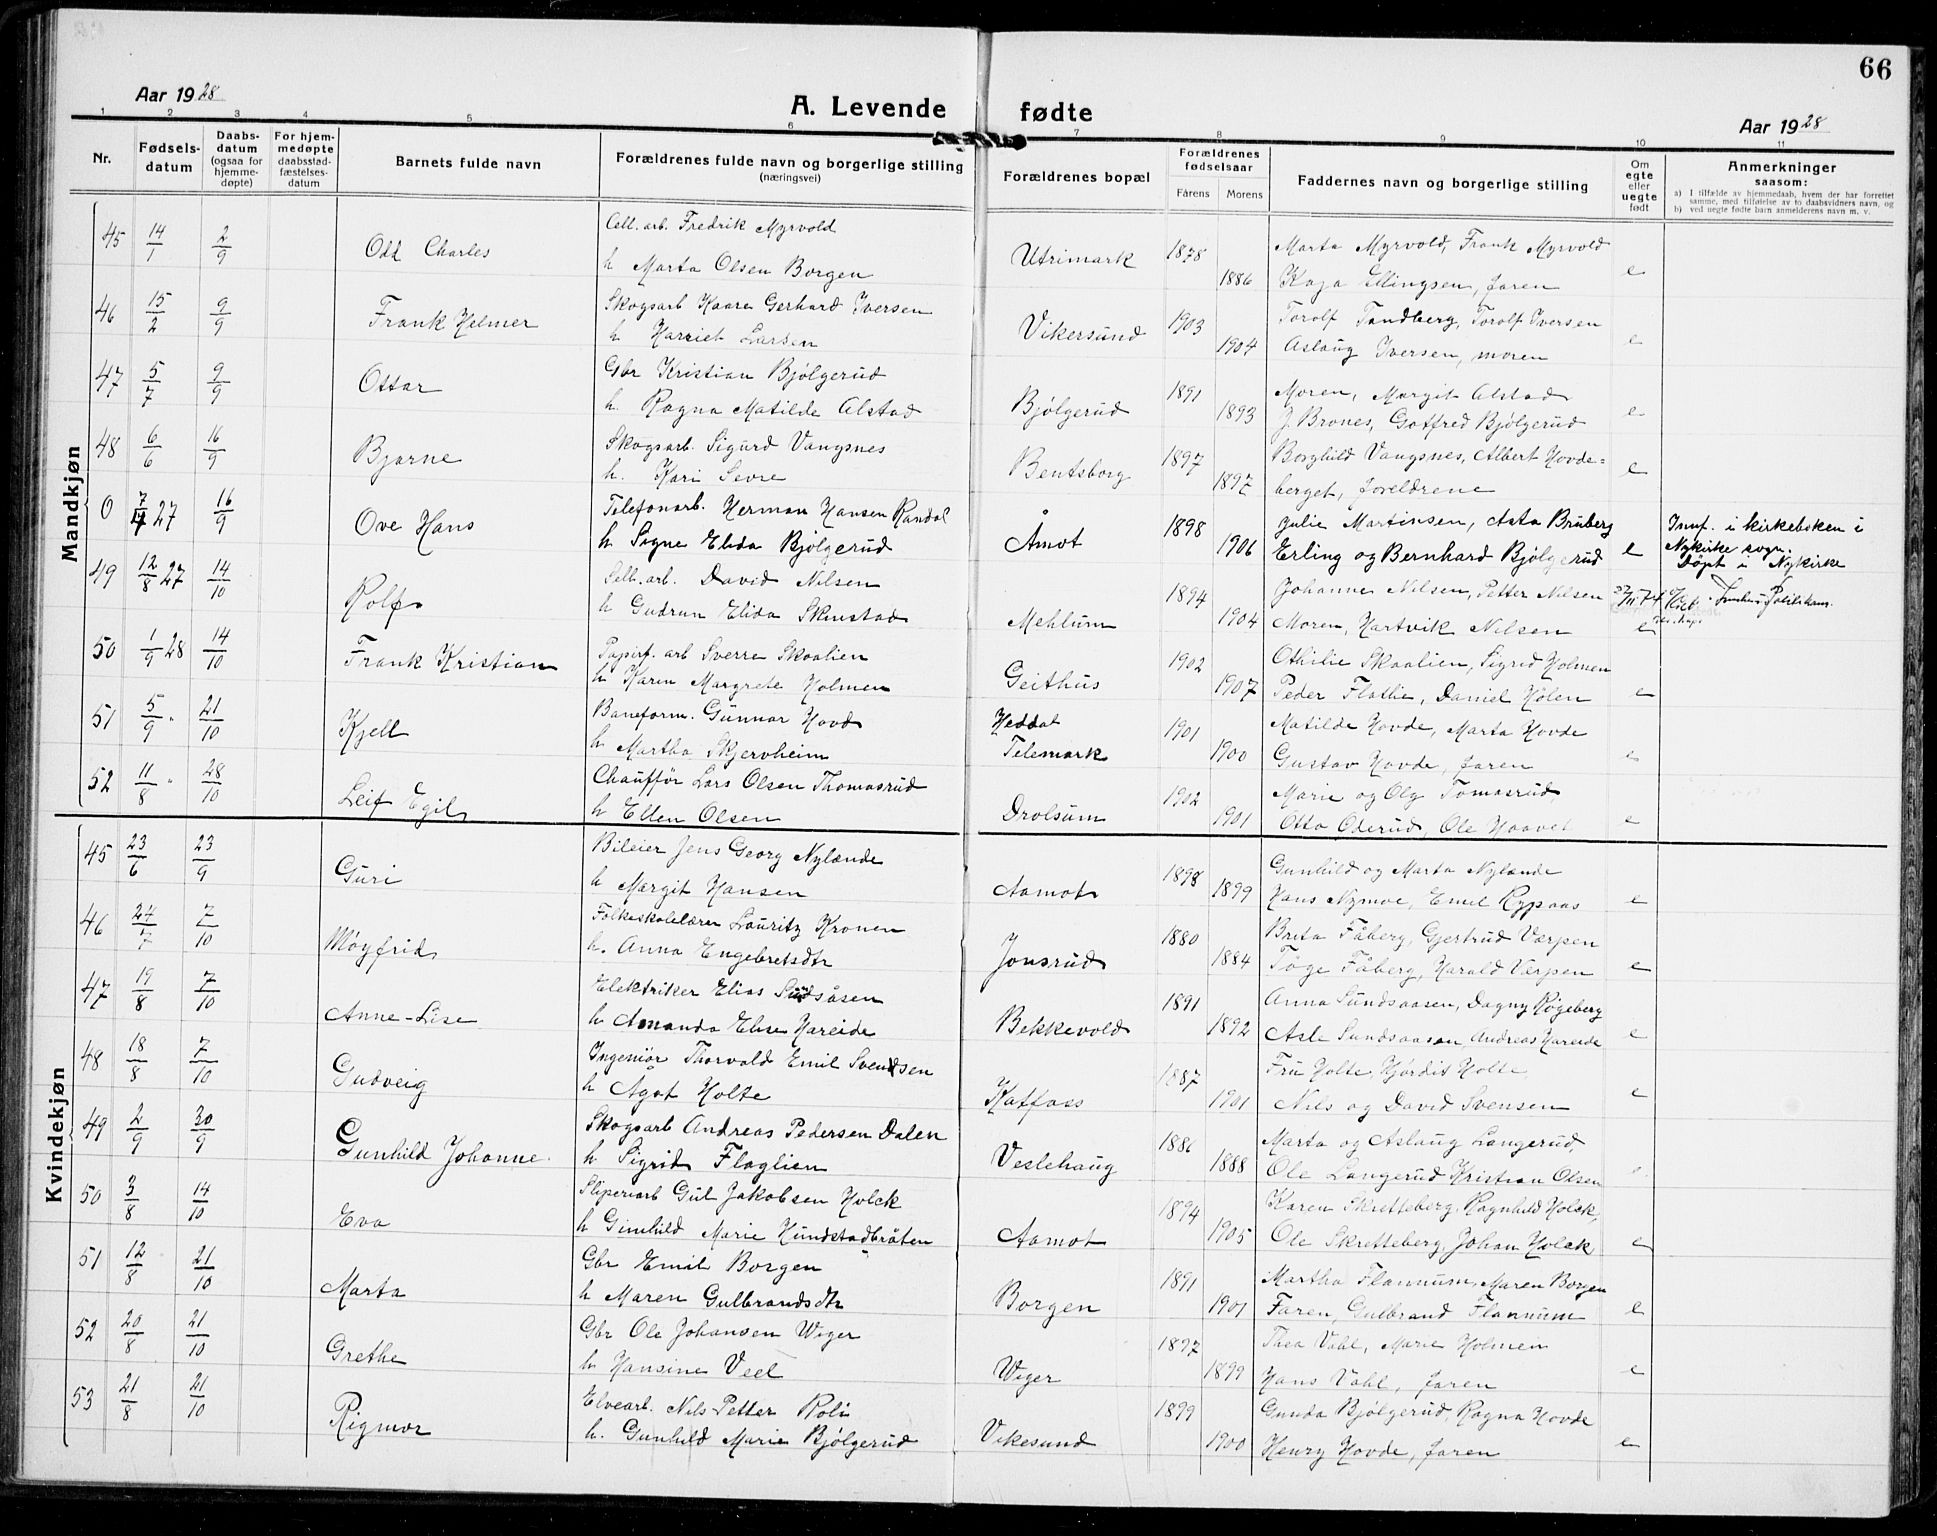 66
Aar 1928
A. Levende fødte
Aar 1928
1 2 3 4 5 6 7 8 9 10 11
Nr.
Fødsels-
datum
Daabs-
datum
(ogsaa for
hjemme-
døpte)
For hjem-
medøpte
daabsstad-
fæstelses-
datum
Barnets fulde navn
Forældrenes fulde navn og borgerlige stilling
(næringsvei)
Forældrenes bopæl
Forældrenes
fødselsaar
Farens Morens
Faddernes navn og borgerlige stilling
Om
egte
eller
uegte
født
Anmerkninger
saasom:
a) I tilfælde av hjemmedaab, hvem der har forrettet
samme, med tilføielse av to daabsvidners navn, og
b) ved uegte fødte barn anmelderens navn m. v.
Mandkjøn
45 14/1 2/9 Odd Charles Cell. arb. Fredrik Myrvold Utrimark 1878 Marta Myrvold, Frank Myrvold
h Marta Olsen Borgen 1886 Kaja Ellingsen, faren e
46 15/2 9/9 Frank Helmer Skogsarb Kaare Gerhard Iversen Vikersund 1903 Torolf Tandberg, Torolf Iversen
h Harriet Larsen 1904 Aslaug Iversen, moren e
47 5/7 9/9 Ottar Gbr Kristian Bjølgerud Bjølgerud 1891 Moren, Margit Alstad
h. Ragna Matilde Alstad 1893 J. Brones, Gotfred Bjølgerud e
48 6/6 16/9 Bjarne Skogsarb. Sigurd Vangsnes Bentsborg 1897 Borghild Vangsnes, Albert Hovde=
h. Kari Sevre 1897 berget, foreldrene e
0 7/4 27 16/9 Ove Hans Telefonarb. Herman Hansen Randal Åmot 1898 Julie Martinsen, Asta Bruberg Innf. i kirkeboken i
h Signe Elida Bjølgerud 1906 Erling og Bernhard Bjølgerud e Nykirke sogn.
Døpt i Nykirke
49 12/8 27 14/10 Rolf Cell. arb. David Nilsen Mehlum 1894 Johanne Nilsen, Petter Nilsen
h Gudrun Elida Skinstad 1904 Moren, Hartvik Nilsen e
50 1/9 28 14/10 Frank Kristian Papirf. arb Sverre Skaalien Geithus 1902 Othilie Skaalien, Sigrid Holmen
h Karen Margrete Holmen 1907 Peder Flathe, Daniel Holen e
51 5/9 " 21/10 Kjell Baneform. Gunnar Hovd Heddal 1901 Matilde Hovde, Marta Hovde
h Martha Skjervheim Telemark 1900 Gustav Hovde, faren e
52 11/8 " 28/10 Leif Egil Chauffør Lars Olsen Thomasrud Drolsum 1902 Marie og Olg Tomasrud
h Ellen Olsen 1901 Otto Oderud, Ole Haavet e
Kvindekjøn
45 23/6 23/9 Guri Bileier Jens Georg Nylænde Aamot 1898 Gunhild og Marta Nylænde
h Margit Hansen 1899 Hans Nymoe, Emil Rypaas e
46 27/7 7/10 Møyfrid Folkeskolelærer Lauritz Kronen Jonsrud 1880 Brita Fåberg, Gjertrud Værpen
h. Anna Engebretsdtr 1884 Tøge Fåberg, Harald Værpen e
47 19/8 7/10 Anne-Lise Elektriker Elias Sundsåsen Bekkevold 1891 Anna Sundsaasen, Dagny Røgeberg
h Amanda Elise Hareide 1892 Asle Sundsaasen, Andreas Hareide e
48 18/8 7/10 Gudveig Ingeniør Thorvald Emil Svendsen Kaffoss 1887 Fru Holte, Hjørdis Holte
h Agot Holte 1901 Nils og David Svensen e
49 2/9 30/9 Gunhild Johanne. Skogsarb Andreas Pedersen Dalen Veslehaug 1886 Marta og Aslaug Langerud,
h Sigrid Flaglien 1888 Ole Langerud Kristian Olsen e
50 3/8 14/10 Eva Sliperiarb Gul Jakobsen Holck Aamot 1894 Karen Skretteberg, Ragnhild Holck,
h Gunhild Marie Hundstadbråten 1905 Ole Skretteberg, Johan Holck e
51 12/8 21/10 Marta Gbr Emil Borgen Borgen 1891 Martha Flannum, Maren Borgen
h Maren Gulbrandsdtr 1901 Faren, Gulbrand Flannum e
52 20/8 21/10 Grethe Gbr Ole Johansen Wiger Wiger 1897 Thea Vahl, Marie Holmen
h Hansine Veel 1899 Hans Vahl, faren e
53 21/8 21/10 Rigmor Elvearb. Nils Petter Roli Vikesund 1899 Gunda Bjølgerud, Ragna Hovde
h. Gunhild Marie Bjølgerud 1900 Henry Hovde, faren e